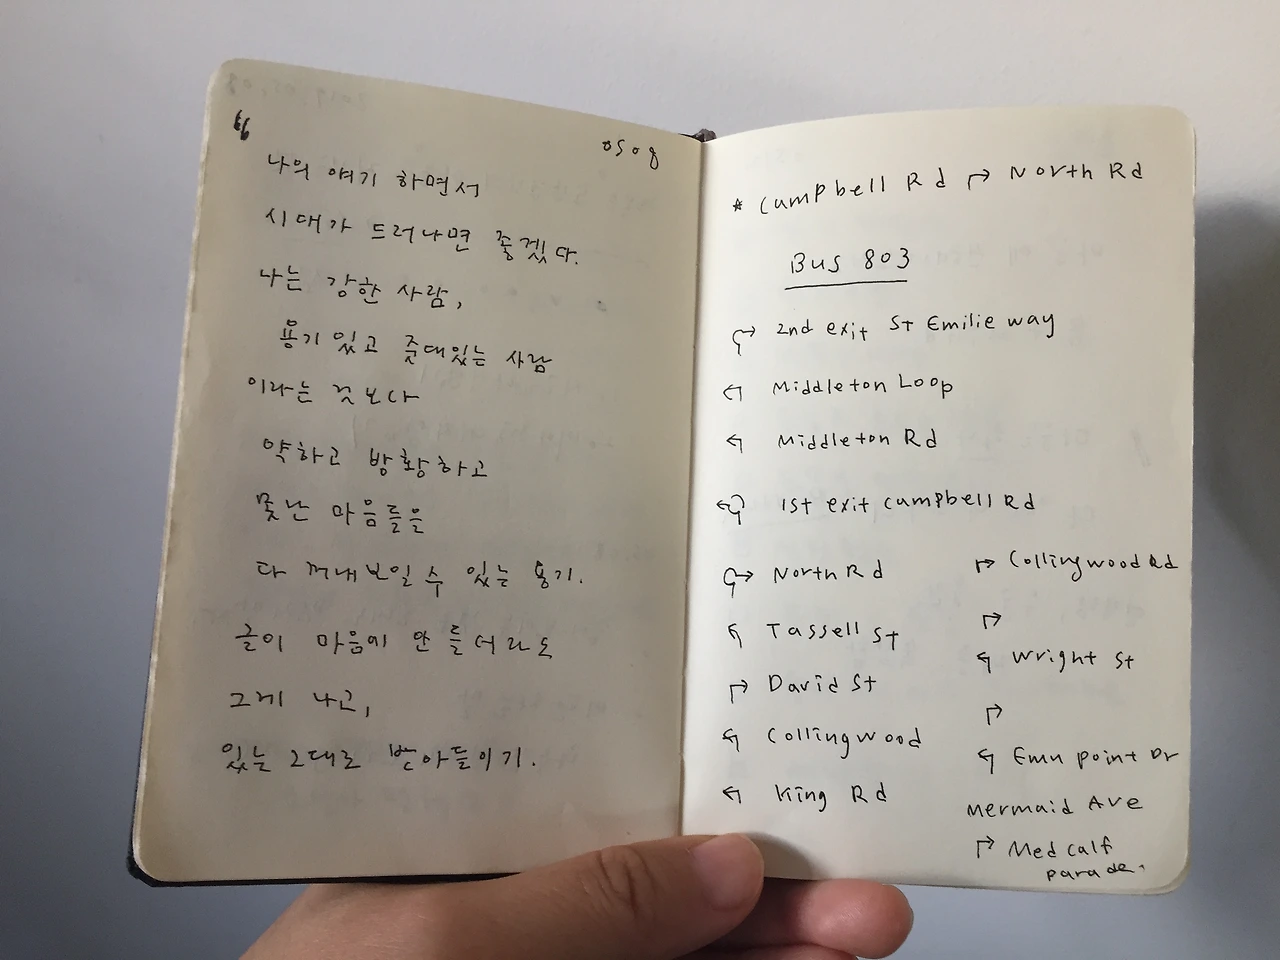 0508
"
나의 얘기 하면서
시대가 드러나면 좋겠다.
나는 강한 사람,
용기 있고 줏대있는 사람
이라는 것보다
약하고 방황하고
못난 마음들을
다 꺼내보일 수 있는 용기.
글이 마음에 안 들더라도
그게 나고,
있는 그대로 받아들이기.
* Campbell Rd ↱ North Rd
Bus 803
2nd exit St Emilie way
↰ Middleton Loop
↰ Middleton Rd
1st exit Campbell Rd
North Rd
↰ Tassell St
↱ David St
↰ Collingwood
↰ King Rd
↱ Collingwood Rd
↱
↰ Wright St
↱
↰ Emu point Dr
Mermaid Ave
↱ Medcalf
parade.